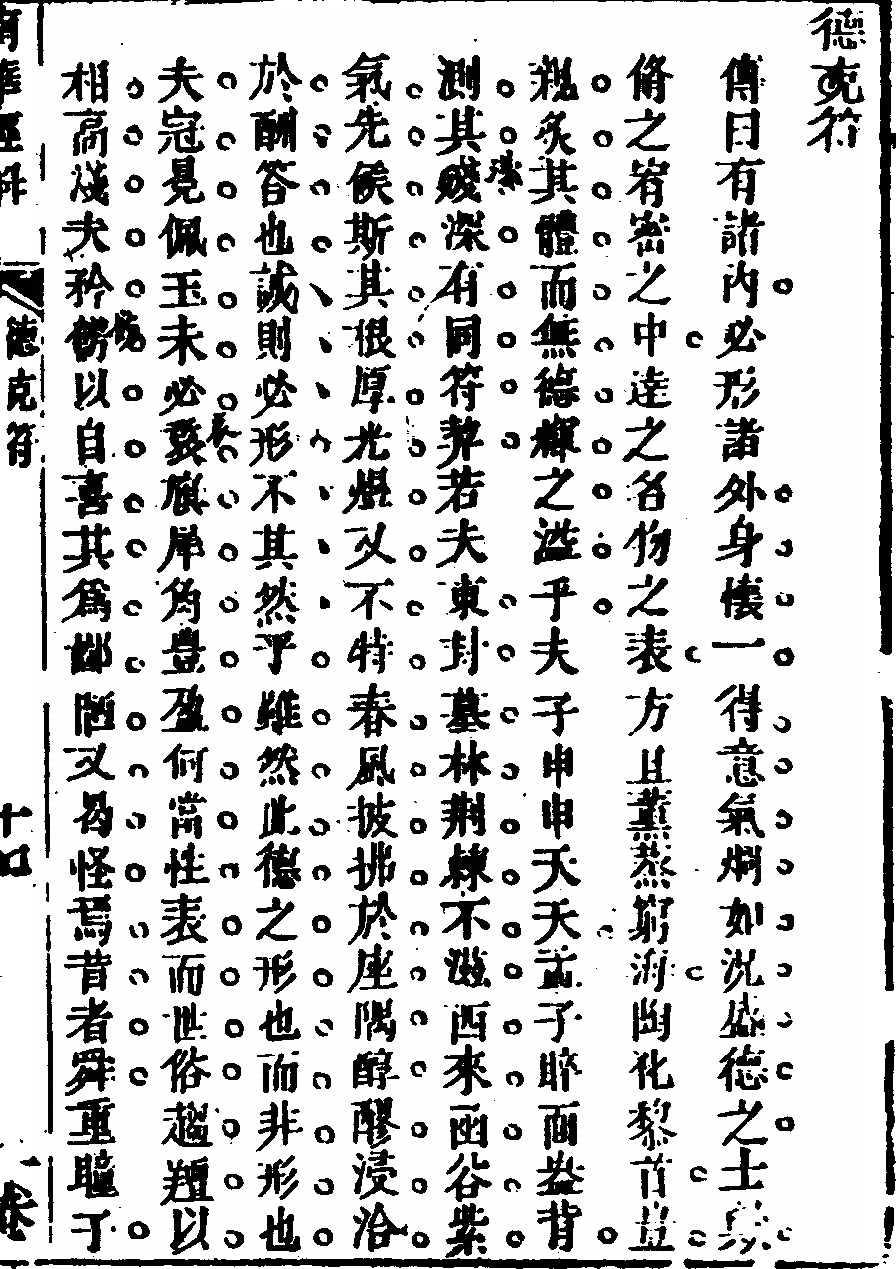 德充符
傳曰有諸內必形諸外身懷一得意氣烱如況盛德之士
脩之宥密之中達之名物之表方且薰蒸窮海陶化黎首豈
親炙其體而無德輝之溢乎夫子申申夭夭孟子睟面盎背
測其殘深有同符契若夫東封墓林荆棘不滋西來函谷紫
氣先候斯其很厚光焜又不特春風披拂於座隅醇醪浸洽
於酬答也誠則必形不其然乎雖然此德之形也而非形也
夫冠冕佩玉未必發旗犀角豊盈何當性表而世俗趨羶以
相高淺夫矜髒以自喜其為鄙陋又曷怪焉昔者舜重瞳子
南華經
德充符